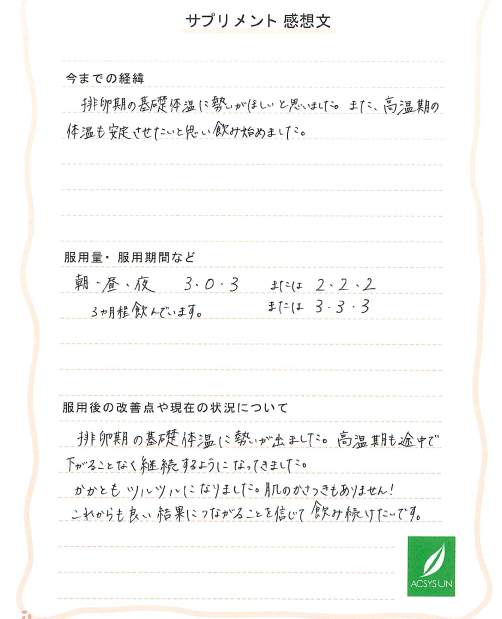 サプリメント 感想文
今までの経緯
排卵期の基礎体温に勢いがほしいと思いました。また、高温期の
体温も安定させたいと思い飲み始めました。
服用量・服用期間など
朝・昼・夜 3・0・3 または 2・2・2
3ヵ月程飲んでいます。 または 3・3・3
服用後の改善点や現在の状況について
排卵期の基礎体温に勢いが出ました。高温期も途中で
下がることなく継続するようになってきました。
かかともツルツルになりました。肌のかさつきもありません!
これからも良い結果につながることを信じて飲み続けたいです。
ACSYSUN